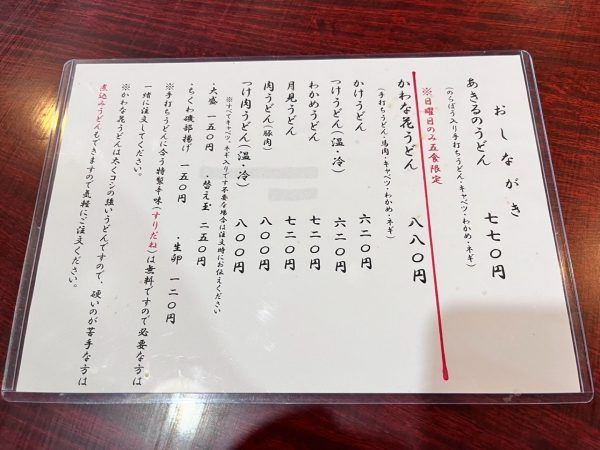 おしながき
あきるのうどん 七七〇円
(のらぼう入り手打ちうどん・キャベツ・わかめ・ネギ)
※日曜日のみ五食限定
かわな花うどん 八八〇円
(手打ちうどん・馬肉・キャベツ・わかめ・ネギ)
かけうどん 六二〇円
つけうどん(温・冷) 六二〇円
わかめうどん 七二〇円
月見うどん 七二〇円
肉うどん(豚肉) 八〇〇円
つけ肉うどん(温・冷) 八〇〇円
※すべてキャベツ、ネギ入りです不要な場合は注文時にお伝えください
・大盛 一五〇円 ・替え玉 二五〇円
・ちくわ磯部揚げ 一五〇円 ・生卵 一二〇円
※手打ちうどんに合う特製辛味(すりだね)は無料ですので必要な方は
一緒に注文してください。
※かわな花うどんは太くコシの強いうどんですので、硬いのが苦手な方は
煮込みうどんもできますので気軽にご注文ください。